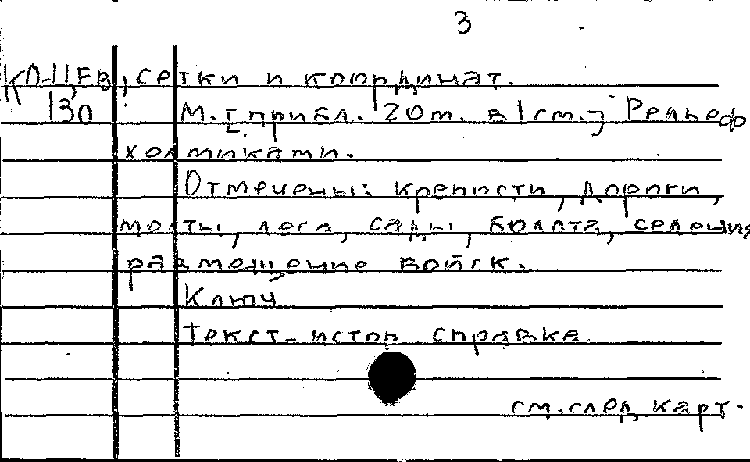 3
К О-II, Ев, сетки и координат.
130 М. [прибл. 20m. в 1 см.] Рельеф
холмиками.
Отмечены: крепости, дороги,
мосты, леса, сады, болота, селения
размещение войск.
Ключ
Текст- истор справка.
см. след. карт.